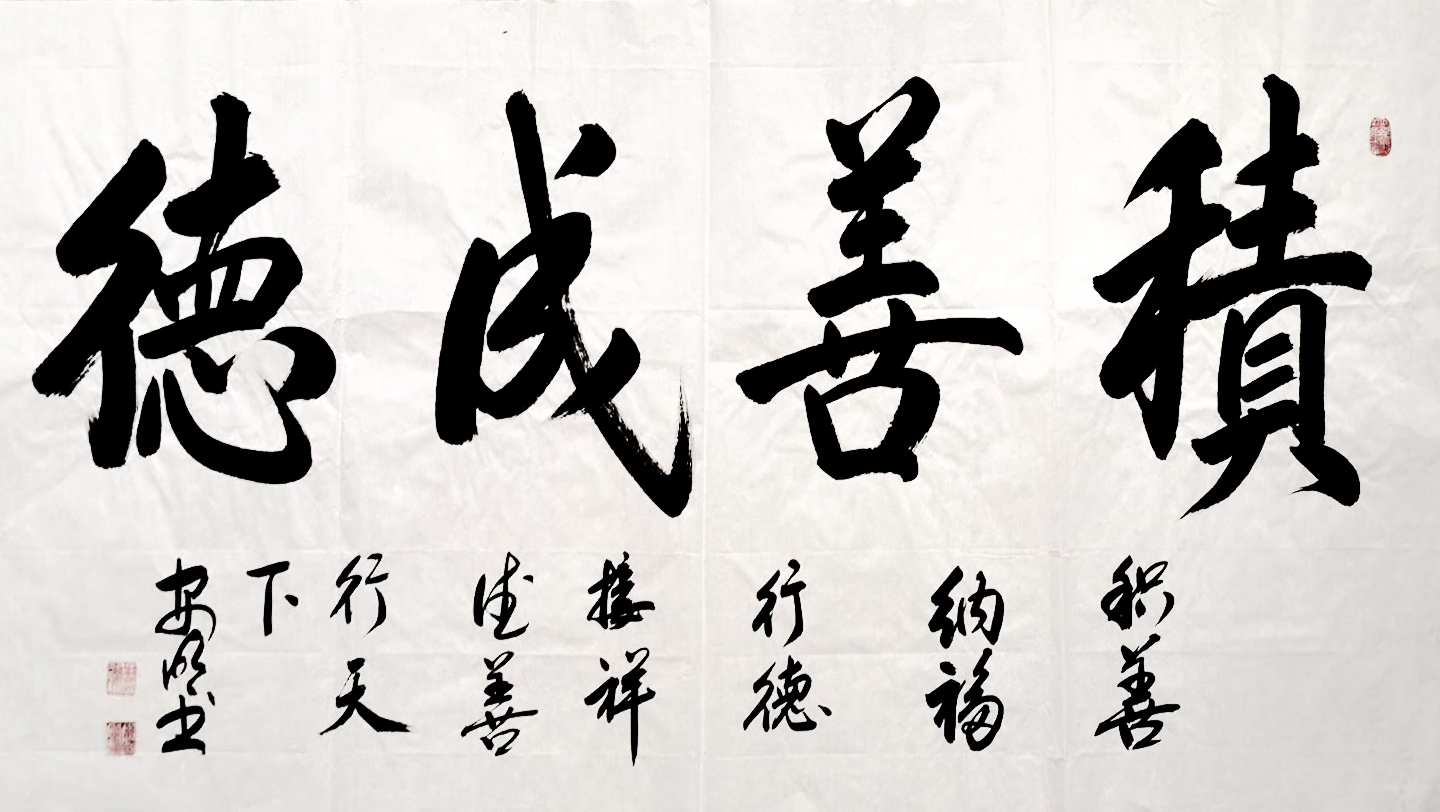 積善成德
积善
纳福
行德
接祥
德善
行天
下
安明书